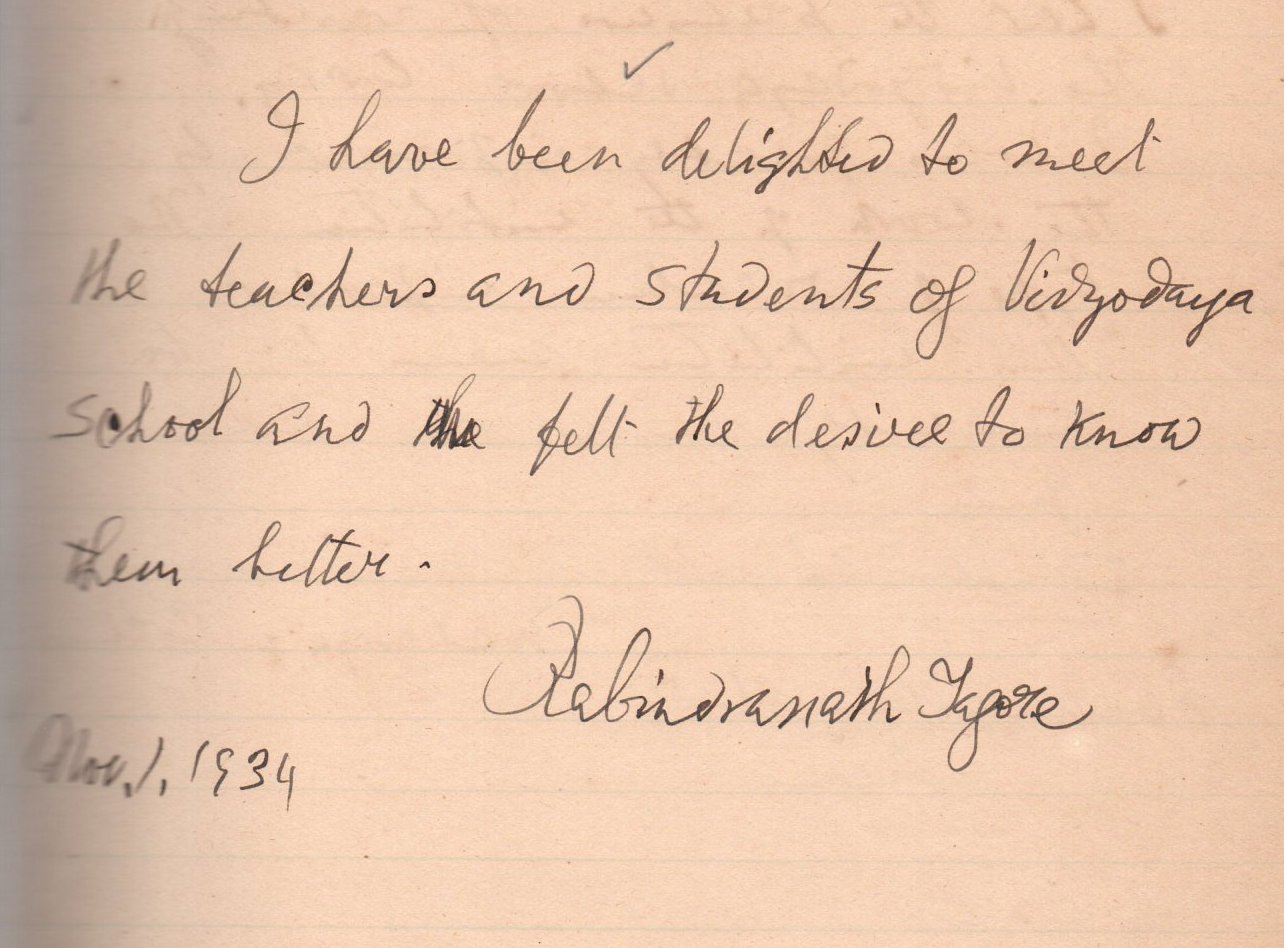 I have been delighted to meet
the teachers and students of Vidyodaya
school and the felt the desire to know
them better.
Rabindranath Tagore
Nov. 1, 1934